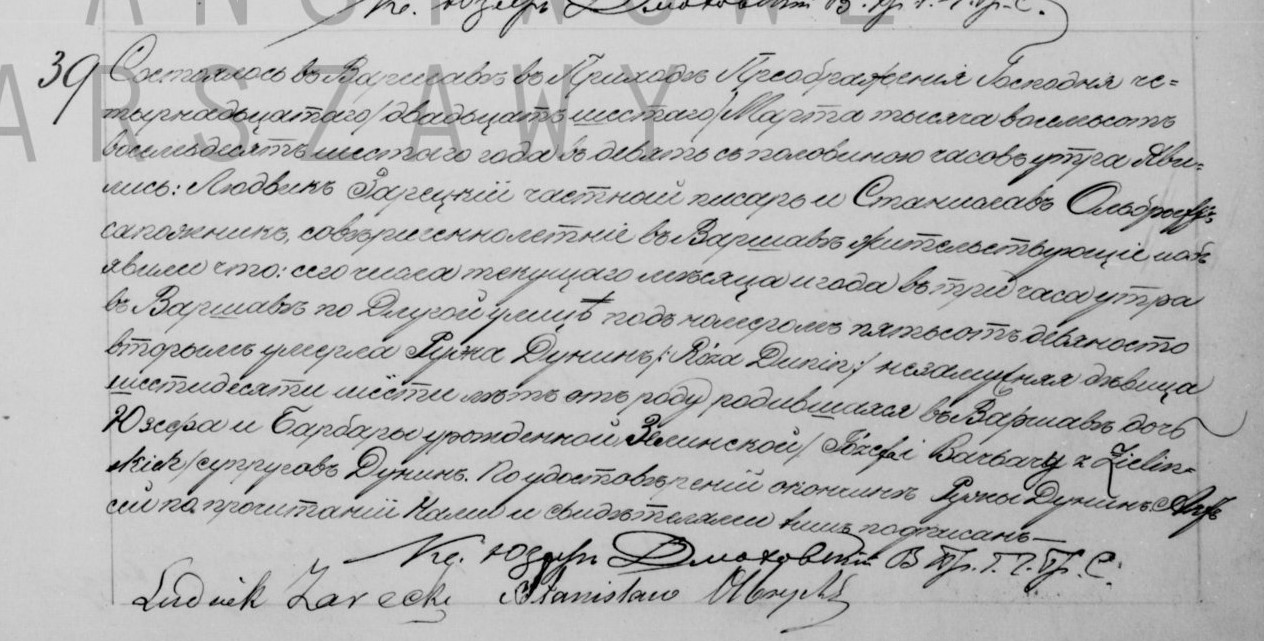 Кс. Юзефъ Дмоховскій В. Пр. Г. Ч. Пр. С.
ARSZAWY
39 Состоялось въ Варшавѣ въ Приходѣ Преображенія Господня че=
тырнадцатаго/двадцать шестаго/Марта тысяча восемьсотъ
восемьдесятъ шестого года въ девять съ половиною часовъ утра. Яви-
лись: Людвикъ Зарецкій частный писарь и Станиславъ
сапожникъ, совершеннолетніе въ Варшавѣ жительствующіе и объ
явили что: сего числа текущаго мѣсяца и года въ три часа утра
въ Варшавѣ по Длугой улицѣ подъ номеромъ пятьсотъ девяносто
вторымъ умерла Ружа Дунинъ /: Róża Dunin :/ незамужняя дѣвица
шестидесяти шести лѣтъ отъ роду родившаяся въ Варшавѣ, дочь
Юзефа и Барбары урожденной Зелинской / Józefa i Barbary z Zieliń=
skich / супруговъ Дунинъ. По удостовѣреніи о кончинѣ Ружы Дунинъ Актъ
сей по прочитаніи Нами и свидѣтелями лишь подписанъ —
Кс. Юзефъ Дмоховскій В. Пр. Г. Ч. Пр. С.
Ludwik Zarecki Stanisław